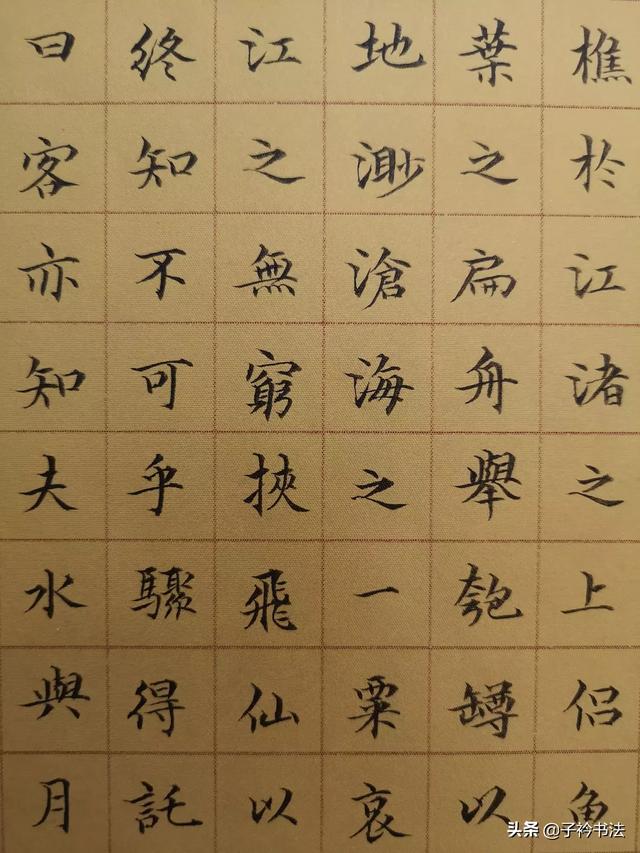 樵於江渚之上侣魚
葉之扁舟舉匏罇以
地渺滄海之一粟哀
江之無窮挾飛仙以
終知不可乎驟得託
曰客亦知夫水與月
头条 @子衿书法